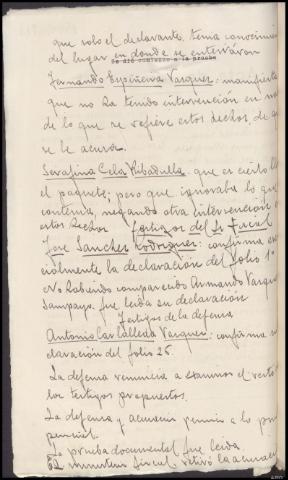 que solo el declarante tenia conocimien
del lugar en donde se enterraron
se dió comienzo a la prueba
Fernando Espiñeira Vazquez: manifiesta
que no ha tenido intervención en na
de lo que se refiere estos hechos, de
se le acusa.
Serafina Cela Ribadulla. que es cierto ll
el paquete; pero que ignoraba lo que
contenia, negando otra intervencion
estos hechos Testigos del Sr Fiscal
Jose Sanchez Rodriguez: confirma
cialmente la declaración del folio 1º
No habiendo comparecido Armando Vazqu
Sampayo, fue leida su declaración
Testigos de la defensa
Antonio Carballeda Vazquez: confirma
claración del folio 26.
La defensa renuncia a examinar el resto
los testigos propuestos.
La defensa y acusación a lo
La prueba documental fue leida.
El ministerio fiscal retiró la acusacion